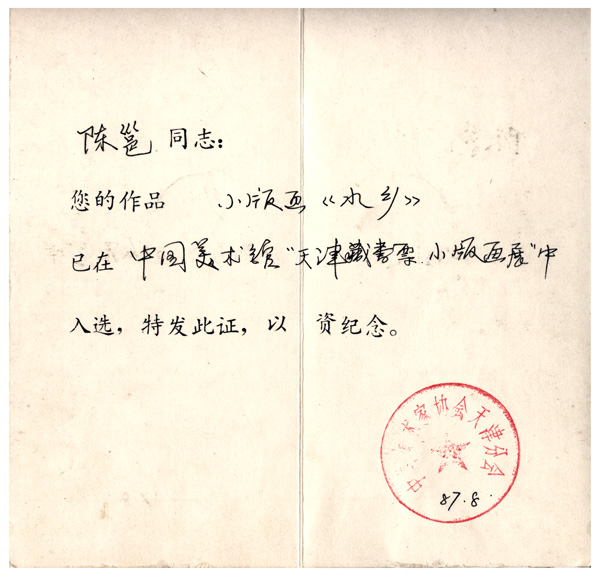 陈邕 同志：
您的作品 小版画《水乡》
已在 中国美术馆“天津藏书票.小版画展”中
入选，特发此证，以 资纪念。
中国美术家协会天津分会
87.8.